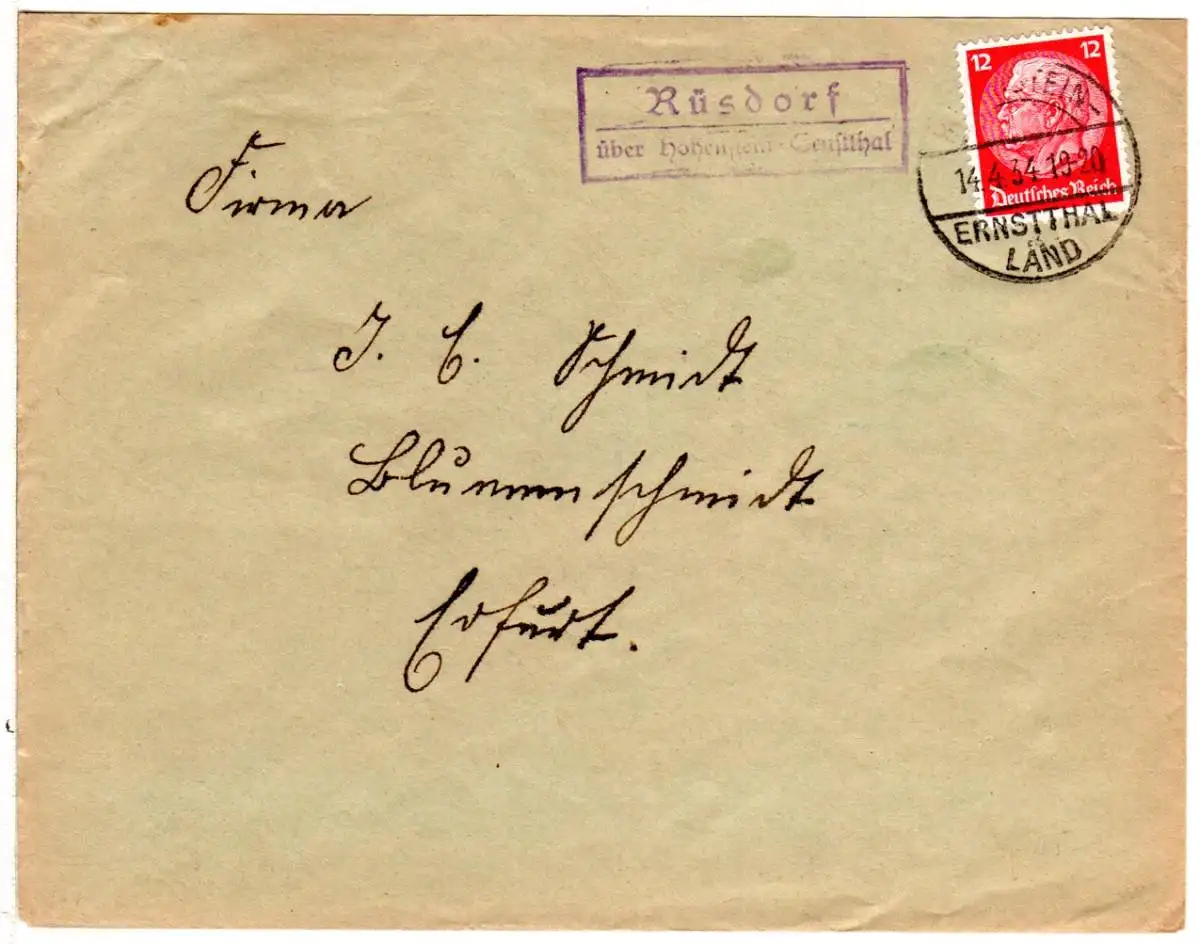 Rüsdorf
über Hohenstein-Ernstthal
12 12
Deutsches Reich
STEIN-
14.4.34.19-20
ERNSTTHAL
LAND
Firma
J. C. Schmidt
Blumenschmidt
Erfurt.